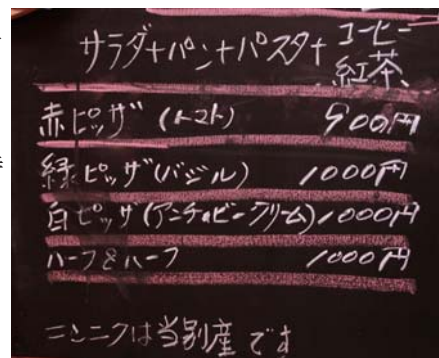 サラダ+パン+パスタ+コーヒー
紅茶
赤ピッザ(トマト) 900円
緑ピッザ(バジル) 1000円
白ピッザ(アンチョビークリーム) 1000円
ハーフ&ハーフ 1000円
ニンニクは当別産です